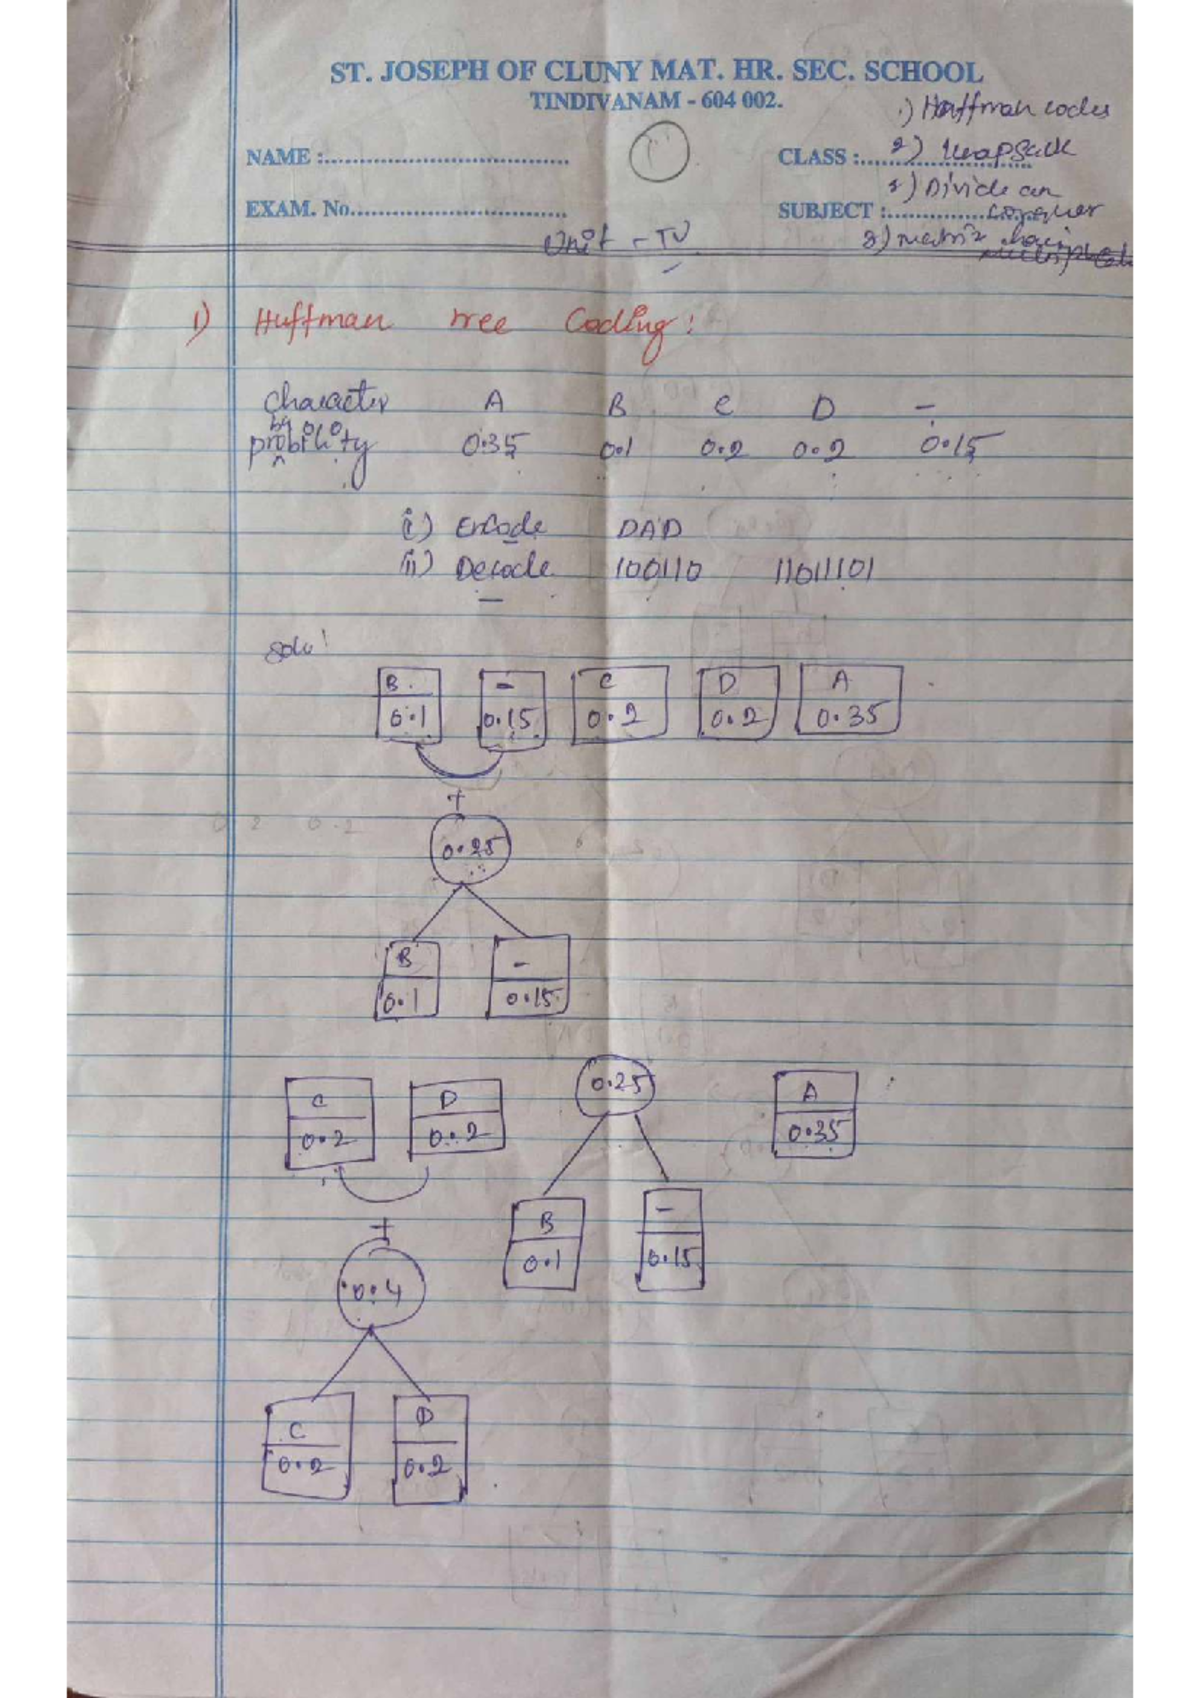 ST. JOSEPH OF CLUNY MAT. HR. SEC. SCHOOL
TINDIVANAM - 604 002.
1) Huffman codes
NAME :.................................. 1 CLASS :..........................
2) knapsack
3) Divide
conquer
EXAM. No.................................. SUBJECT :..........................
Unit - IV
3) matrix chain
1) Huffman tree Coding:
Character A B C D -
probility 0.35 0.1 0.2 0.2 0.15
i) Encode DAD
ii) Decode 100110 11011101
solu!
B - C D A
0.1 0.15 0.2 0.2 0.35
+
0.25
B -
0.1 0.15
C D 0.25 A
0.2 0.2 0.35
B -
0.1 0.15
+
0.4
C D
0.2 0.2